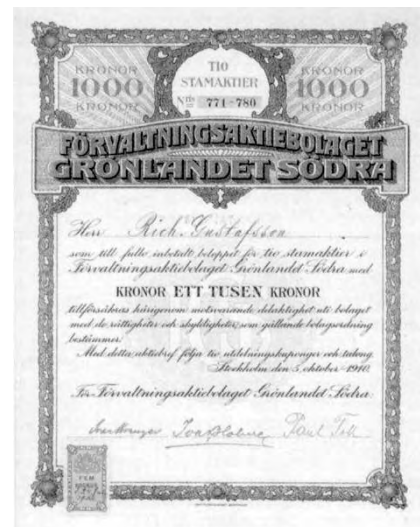 KRONOR
1000
KRONOR
TIO
STAMAKTIER
N:ris 771-780
KRONOR
1000
KRONOR
FÖRVALTNINGSAKTIEBOLAGET
GRÖNLANDET SÖDRA
Herr Rich. Gustafsson
som till fullo inbetalt beloppet för tio stamaktier i
Förvaltningsaktiebolaget Grönlandet Södra med
KRONOR ETT TUSEN KRONOR
tillförsäkras härigenom motsvarande delaktighet uti bolaget
med de rättigheter och skyldigheter, som gällande bolagsordning
bestämmer.
Med detta aktiebref följa tio utdelningskuponger och talong.
Stockholm den 5 oktober 1910.
För Förvaltningsaktiebolaget Grönlandet Södra:
Ivar Kreuger Paul Toll
FEM